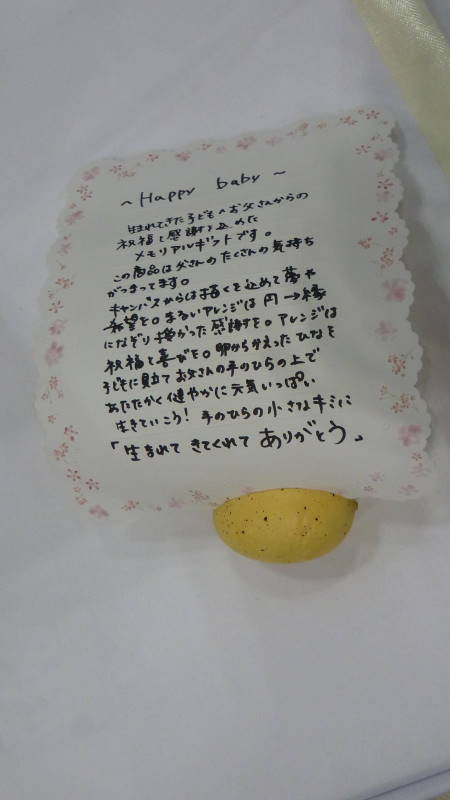 ~Happy baby~
生まれてきた子どもへお父さんからの
祝福と感謝を込めた
メモリアルギフトです。
この商品は父さんのたくさんの気持ち
がつまってます。
キャンバスからは描くを込めて夢や
希望を。まるいアレンジは 円→縁
になぞり授かった感謝を。アレンジは
祝福と喜びを。卵からかえったひなを
子どもに見立てお父さんの手のひらの上で
あたたかく健やかに元気いっぱい
生きていこう! 手のひらの小さなキミに
「生まれて きてくれて ありがとう」